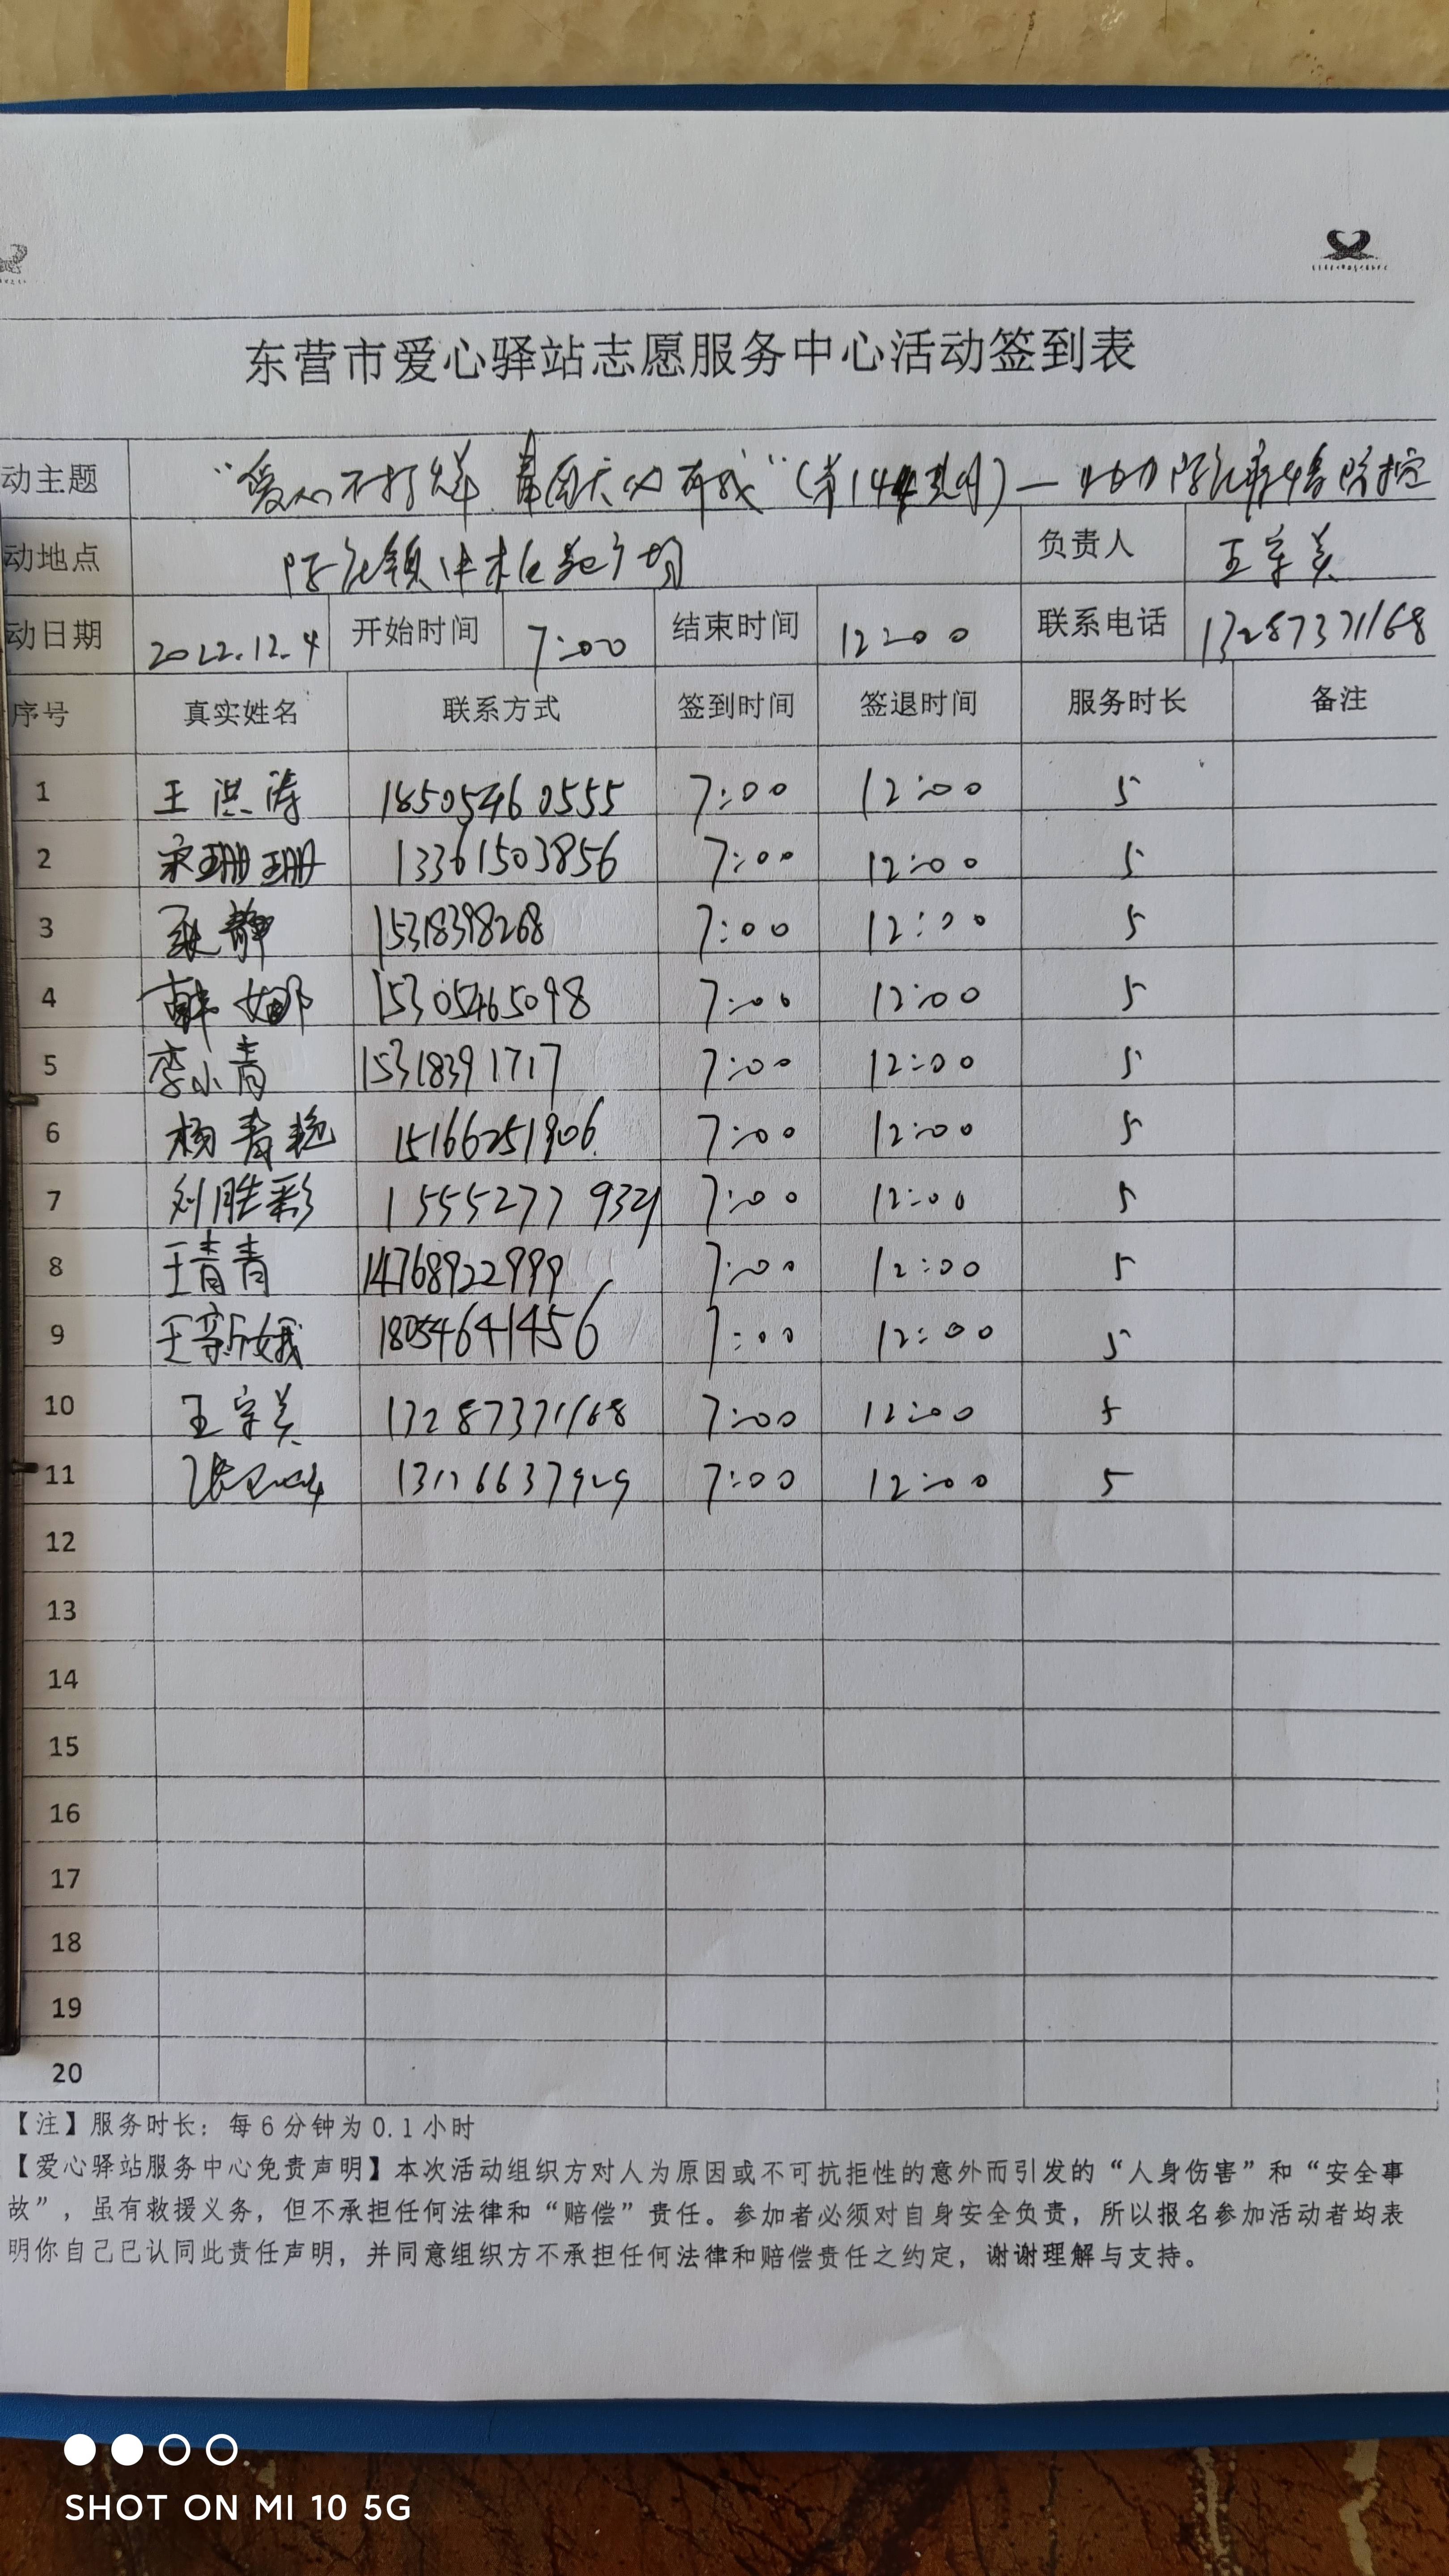 东营市爱心驿站志愿服务中心活动签到表
动主题 “爱心不打烊 每周六必有我”(第144期)—助力陈庄疫情防控
动地点 陈庄镇中 广场 负责人 王宗美
动日期 2022.12.4 开始时间 7:00 结束时间 12:00 联系电话 13287371168
序号 真实姓名 联系方式 签到时间 签退时间 服务时长 备注
1 王洪涛 18505460555 7:00 12:00 5
2 宋珊珊 13361503856 7:00 12:00 5
3 耿静 15318398268 7:00 12:00 5
4 韩娜 15305465098 7:00 12:00 5
5 李小青 15318391717 7:00 12:00 5
6 杨青艳 15166251906 7:00 12:00 5
7 刘胜彩 15552779321 7:00 12:00 5
8 王青青 14768922999 7:00 12:00 5
9 王新娥 18054641456 7:00 12:00 5
10 王宗美 13287371168 7:00 12:00 5
11 7:00 12:00 5
12
13
14
15
16
17
18
19
20
【注】服务时长：每6分钟为0.1小时
【爱心驿站服务中心免责声明】本次活动组织方对人为原因或不可抗拒性的意外而引发的“人身伤害”和“安全事
故”，虽有救援义务，但不承担任何法律和“赔偿”责任。参加者必须对自身安全负责，所以报名参加活动者均表
明你自己已认同此责任声明，并同意组织方不承担任何法律和赔偿责任之约定，谢谢理解与支持。
SHOT ON MI 10 5G